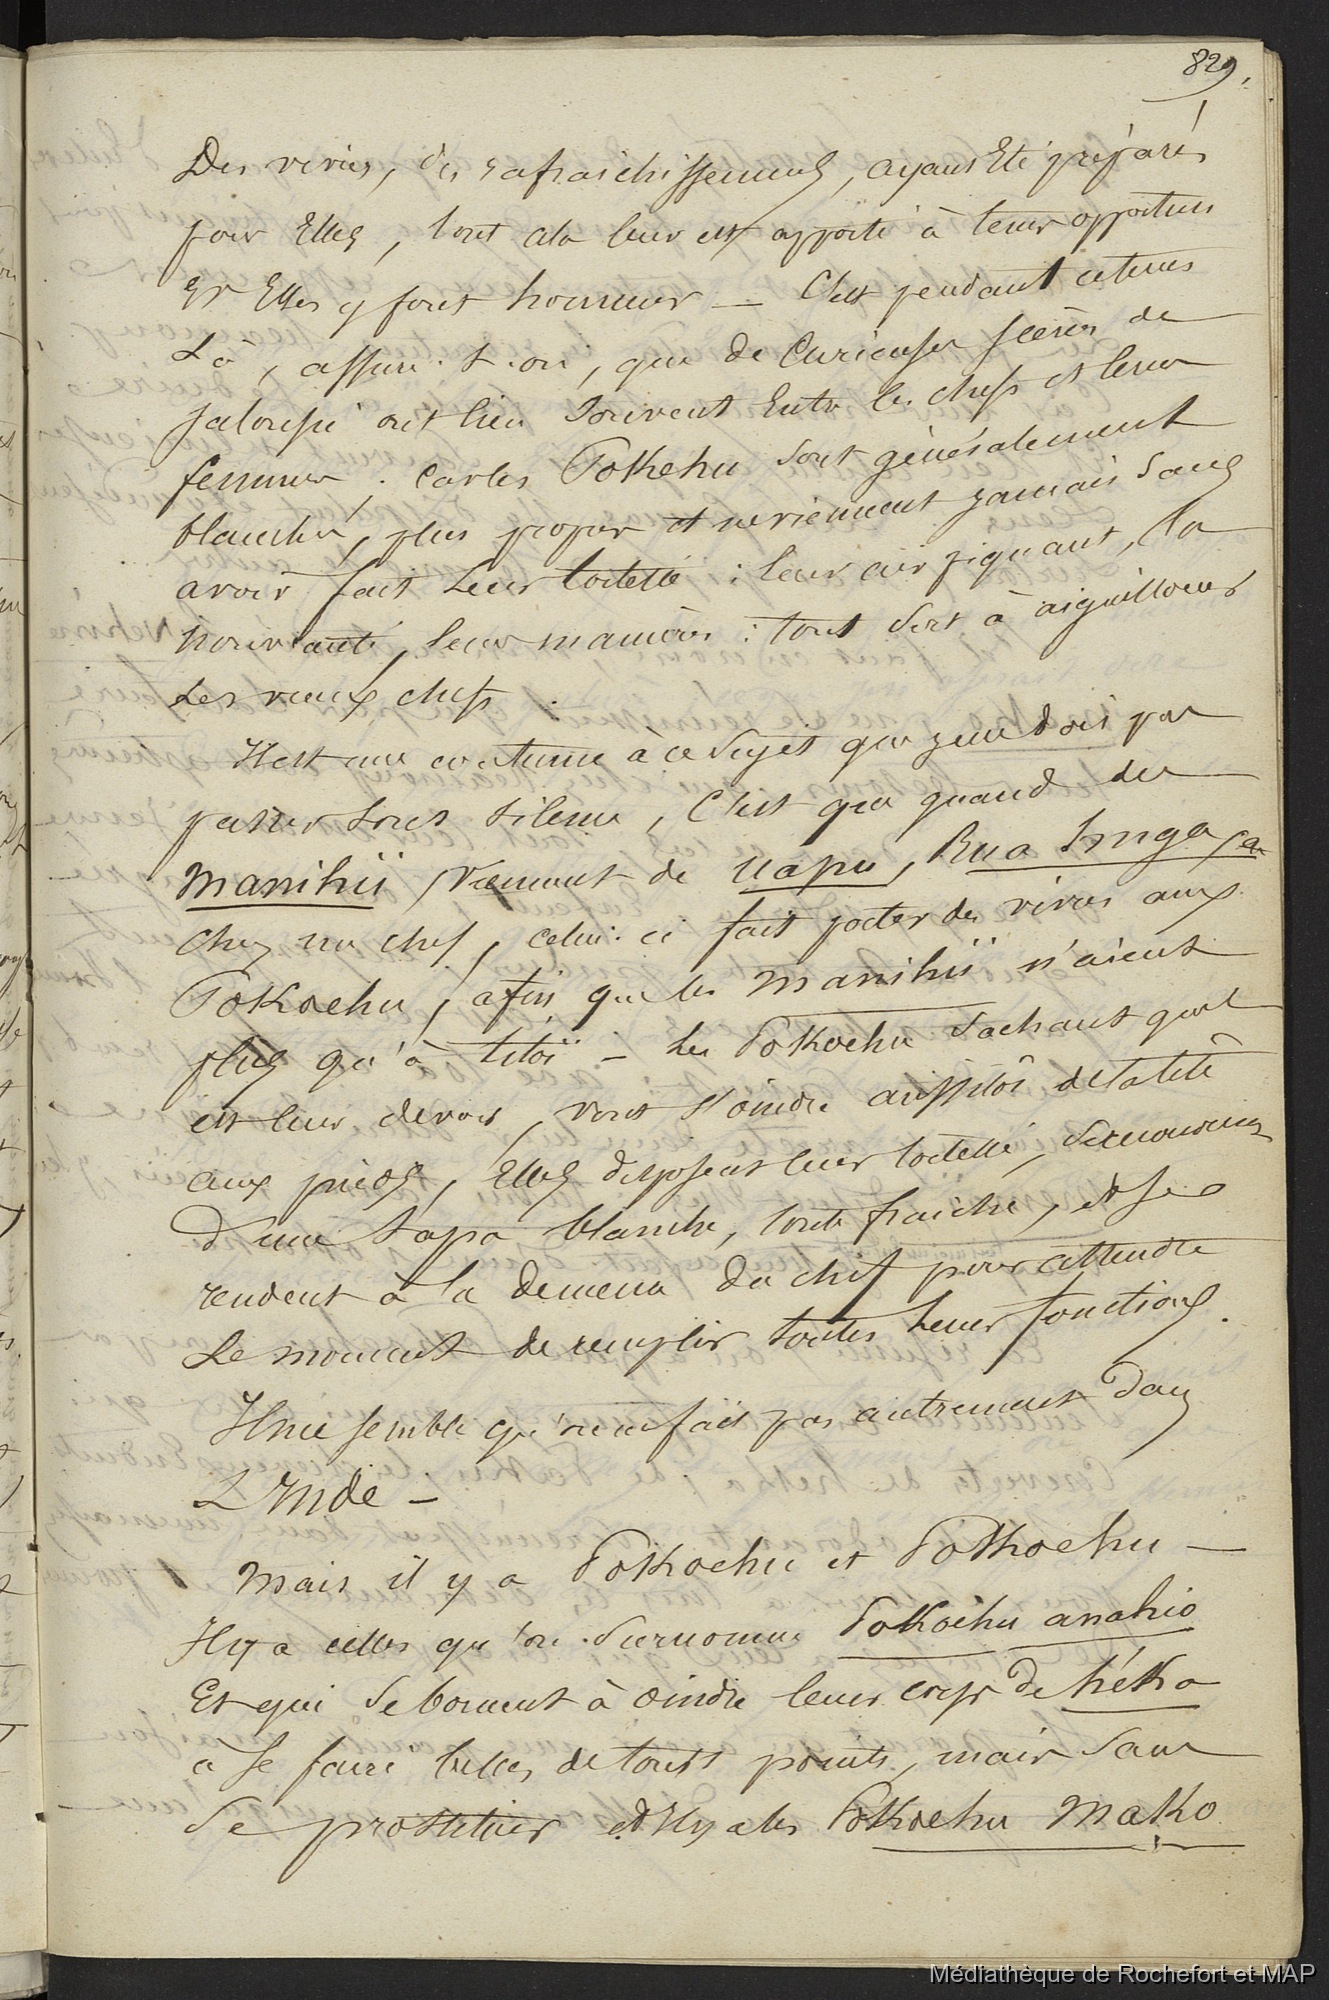 829.
Des vivres, des rafraichissements, ayant Eté préparés
pour Elles, tout cela leur est apporté à leur
Et Elles y font honneur — C'est pendant ce tems
Là, assure-t-on, que de Curieuses scènes de
jalousie ont lieu Souvent Entre les chefs et leurs
femmes ; car les Pokoehu sont généralement
blanches, plus propres et ne viennent jamais sans
avoir fait Leur toilette : leur air piquant, la
nouveauté, leurs manières : tout sert à aiguillonner
Les vieux chefs.
Il est une coutume à ce sujet que je ne dois pas
passer sous silence, C'est que quand des
Manihii viennent de Uapu, &a
chez un chef, celui-ci fait porter des vivres aux
Pokoehu, afin que les manihii n'aient
plus qu'à titoï — Les Pokoehu sachant quel
est leur devoir, vont s'oindre aussitôt de la tête
aux pieds, Elles disposent leur toilette,
d'une tapa blanche, toute fraiche, et se
rendent à la demeure du chef pour attendre
Le moment de remplir toutes Leurs fonctions.
Il me semble qu'on ne fait pas autrement dans
L'Inde —
Mais il y a Pokoehu et Pokoehu —
Il y a celles qu'on surnomme Pokoëhu anahio
Et qui se bornent à oindre leur corps de héka
à se faire belles de touts points, mais sans
se prostituer et Il y a les Pokoehu Mako
Médiathèque de Rochefort et MAP